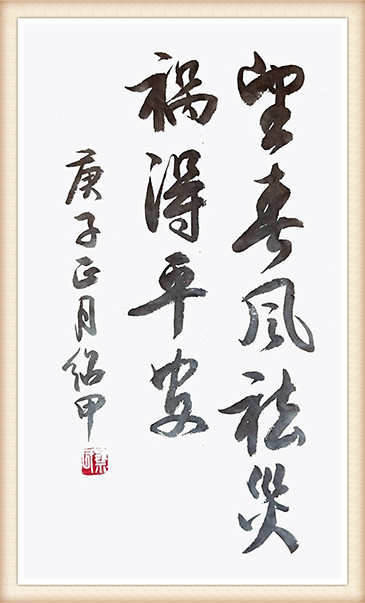 望春风祛災
祸得平安
庚子正月绍甲